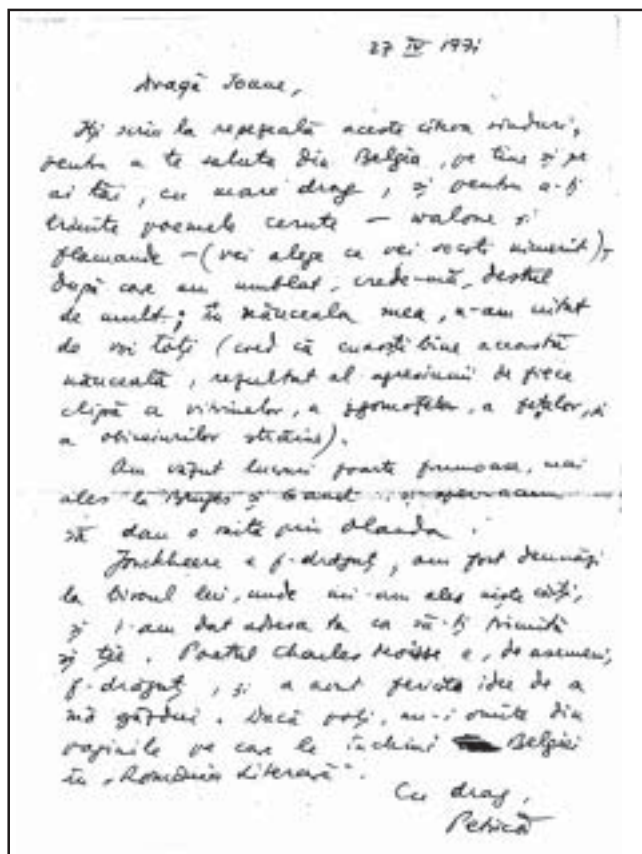 27 IV 1971
Dragă Ioane,
Îți scriu la repezeală aceste cîteva rînduri,
pentru a te saluta din Belgia, pe tine și pe
ai tăi, cu mare drag, și pentru a-ți
trimite poemele cerute — walone și
flamande — (vei alege ce vei socoti nimerit),
după care am umblat, crede-mă, destul
de mult; în năuceala mea, n-am uitat
de voi toți (cred că cunoști bine această
năuceală, rezultat al agresiunii de fiece
clipă a vitrinelor, a zgomotelor, a fețelor, și
a obiceiurilor străine).
Am văzut lucruri foarte frumoase, mai
ales la Bruges și Gand și
să dau o raită prin Olanda.
Jonckheere e f. drăguț, am fost
la biroul lui, unde mi-am ales niște cărți,
și i-am dat adresa ta ca să-ți trimită
și ție. Poetul Charles Moisse e, de asemeni,
f. drăguț, și a avut fericita idee de a
mă găzdui. Dacă poți, nu-i omite din
paginile pe care le închini Belgiei
în „România Literară”.
Cu drag,
Petrică